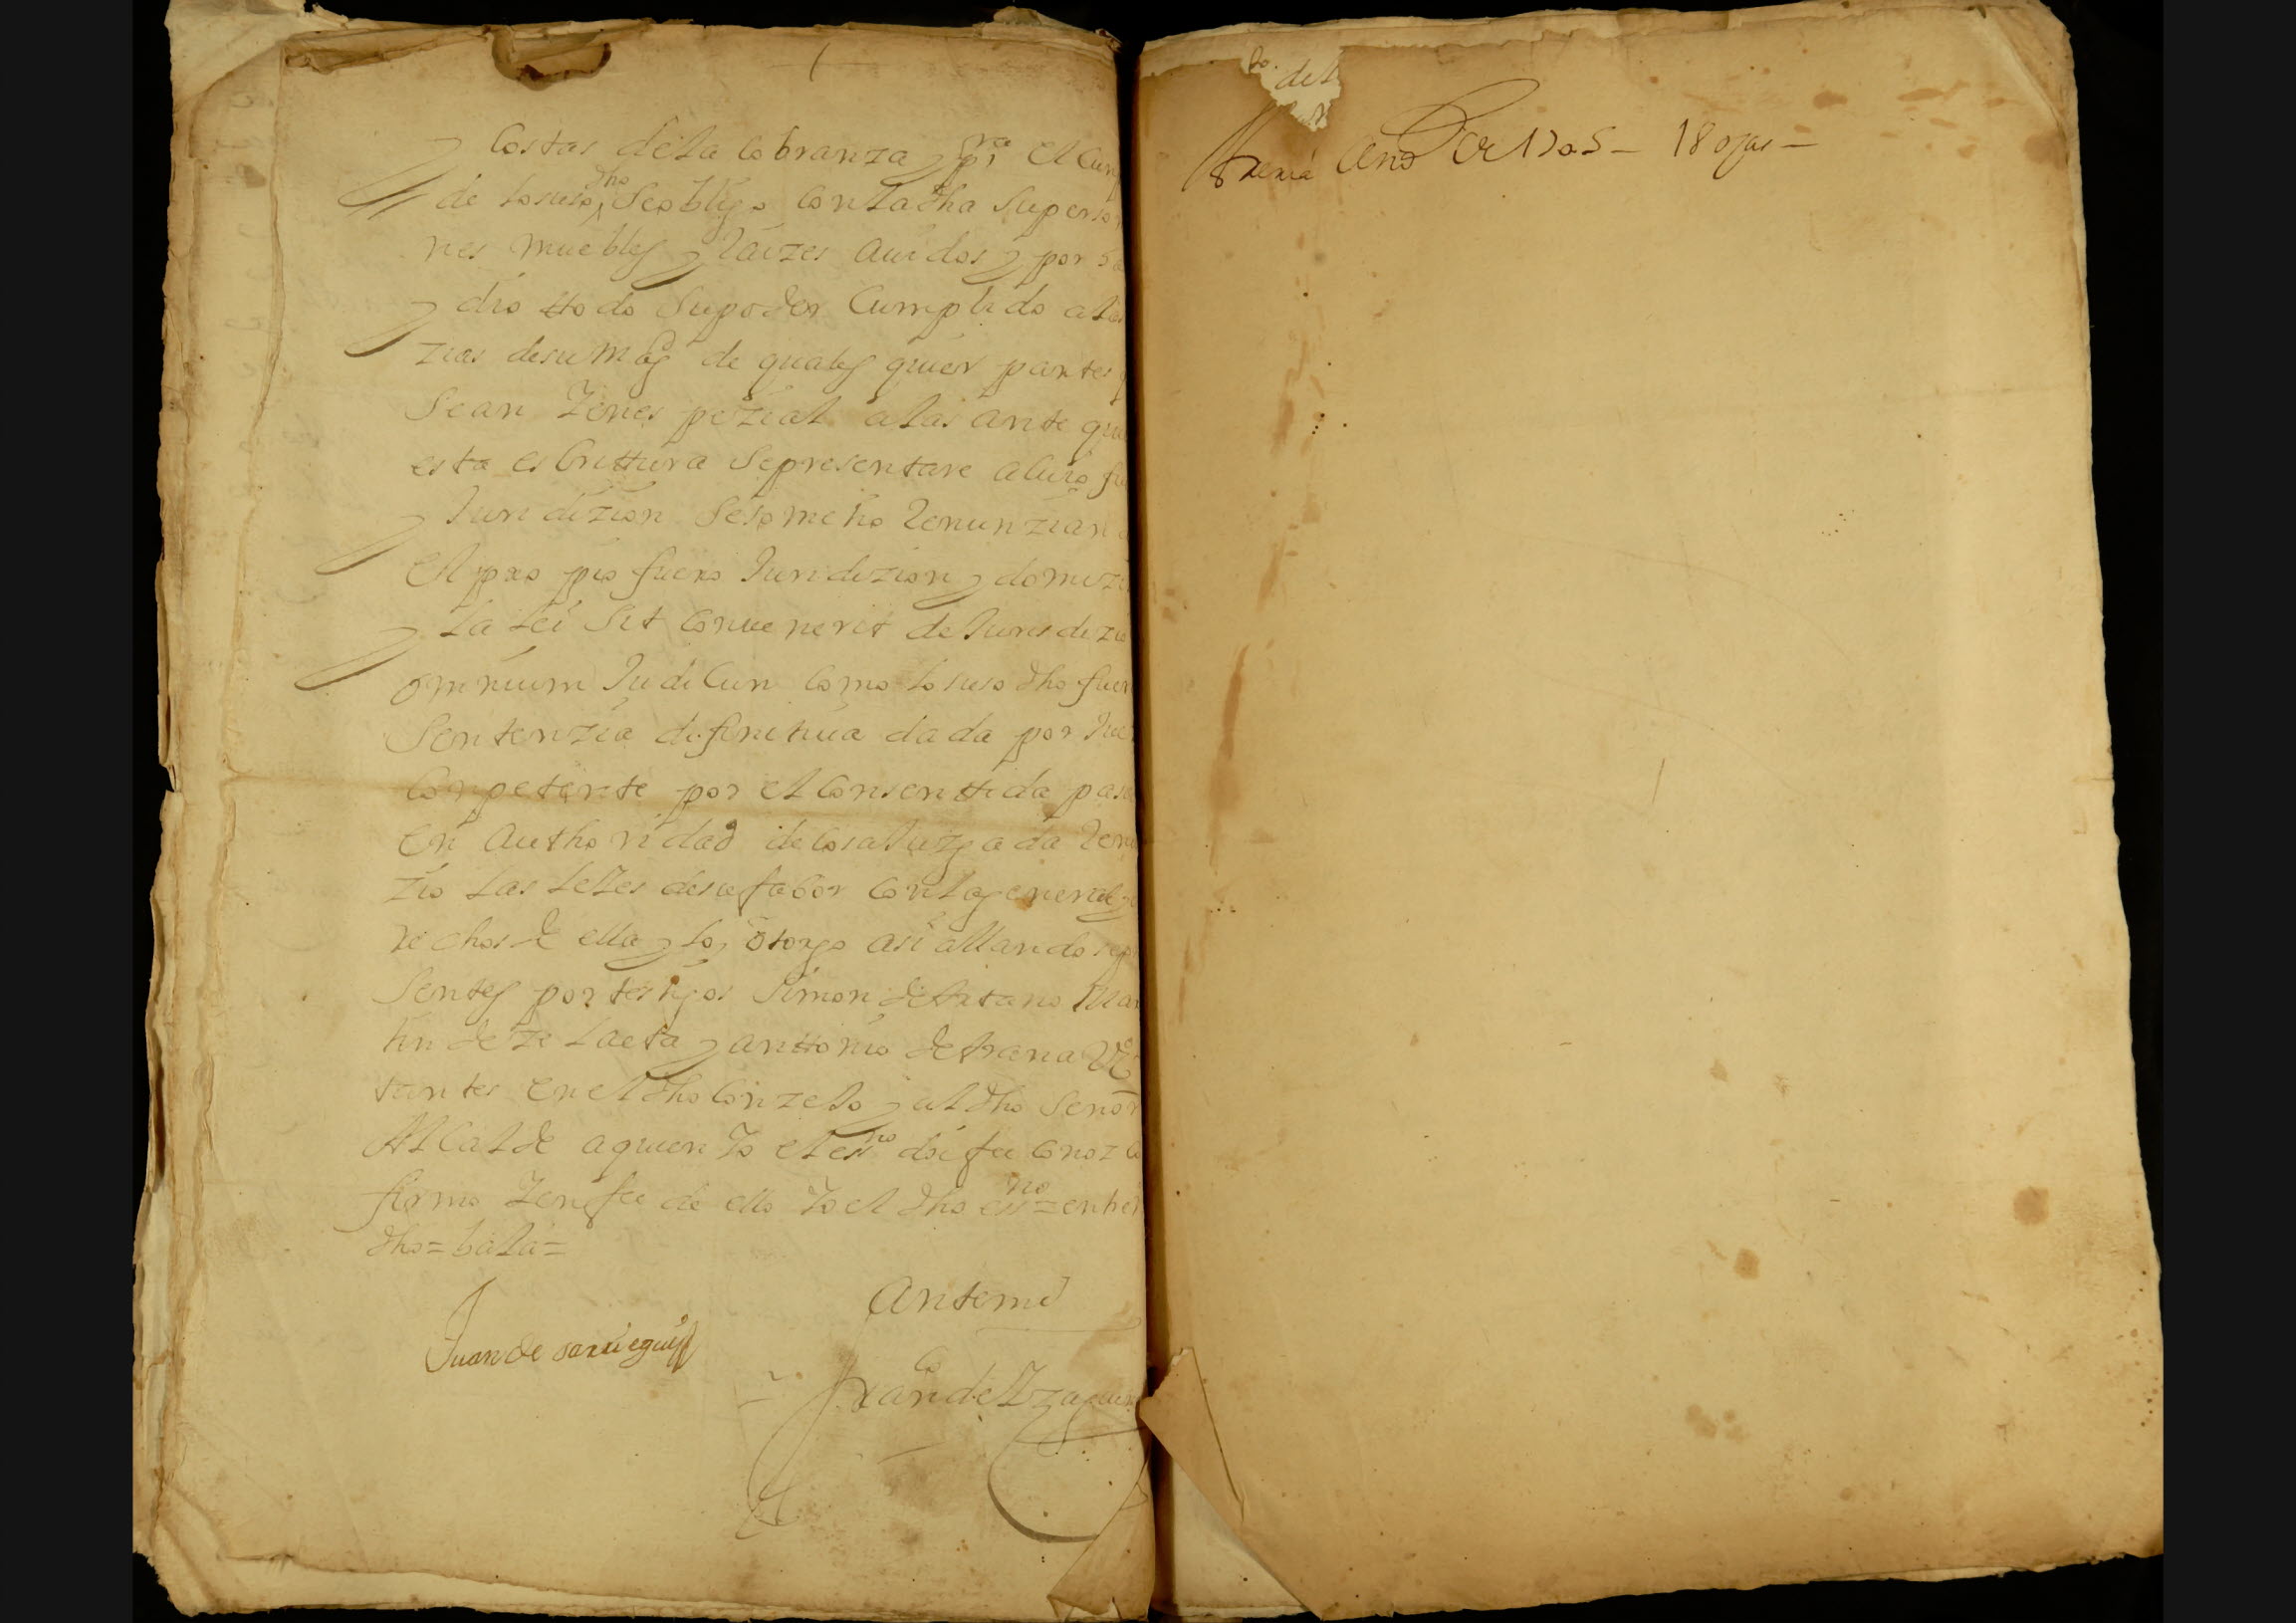 y Costas dela cobranza y pra el cum
de lo suso dho se obligo con la dha su perso
nes muebles y raizes auidos y por
y dio ttodo su poder Cumplido a la
zias de su Mag de quales quier partes
Sean Y en espezial a las ante qu
esta escrittura se presentare a cuio fu
y Juridizion se sometio Renunzian
el propio fuero Juridizion y domizi
y la lei sit conuenerit de Jurisdizi
omnium Judicun como lo suso dho fuer
Sentenzia difinitiua dada por Jue
Conpetente por el consenttida pas
en authoridad de cosa Juzgada Renu
zio las leies de su fabor con la general
rechos de ella y lo otorgo asi allandose p
Sentes por testigos Simon de Mar
tin de Zelaeta y anttonio de frana
tantes en el dho Conzejo y al dho Señor
Alcalde a quien Yo el essno doi fee conozc
firmo Y en fee de ello Yo el dho essno =
dho = bala =
Juan de
Ante mi
Franco de Yzaguirr
de
Ano de 1705 - 18 ojas =